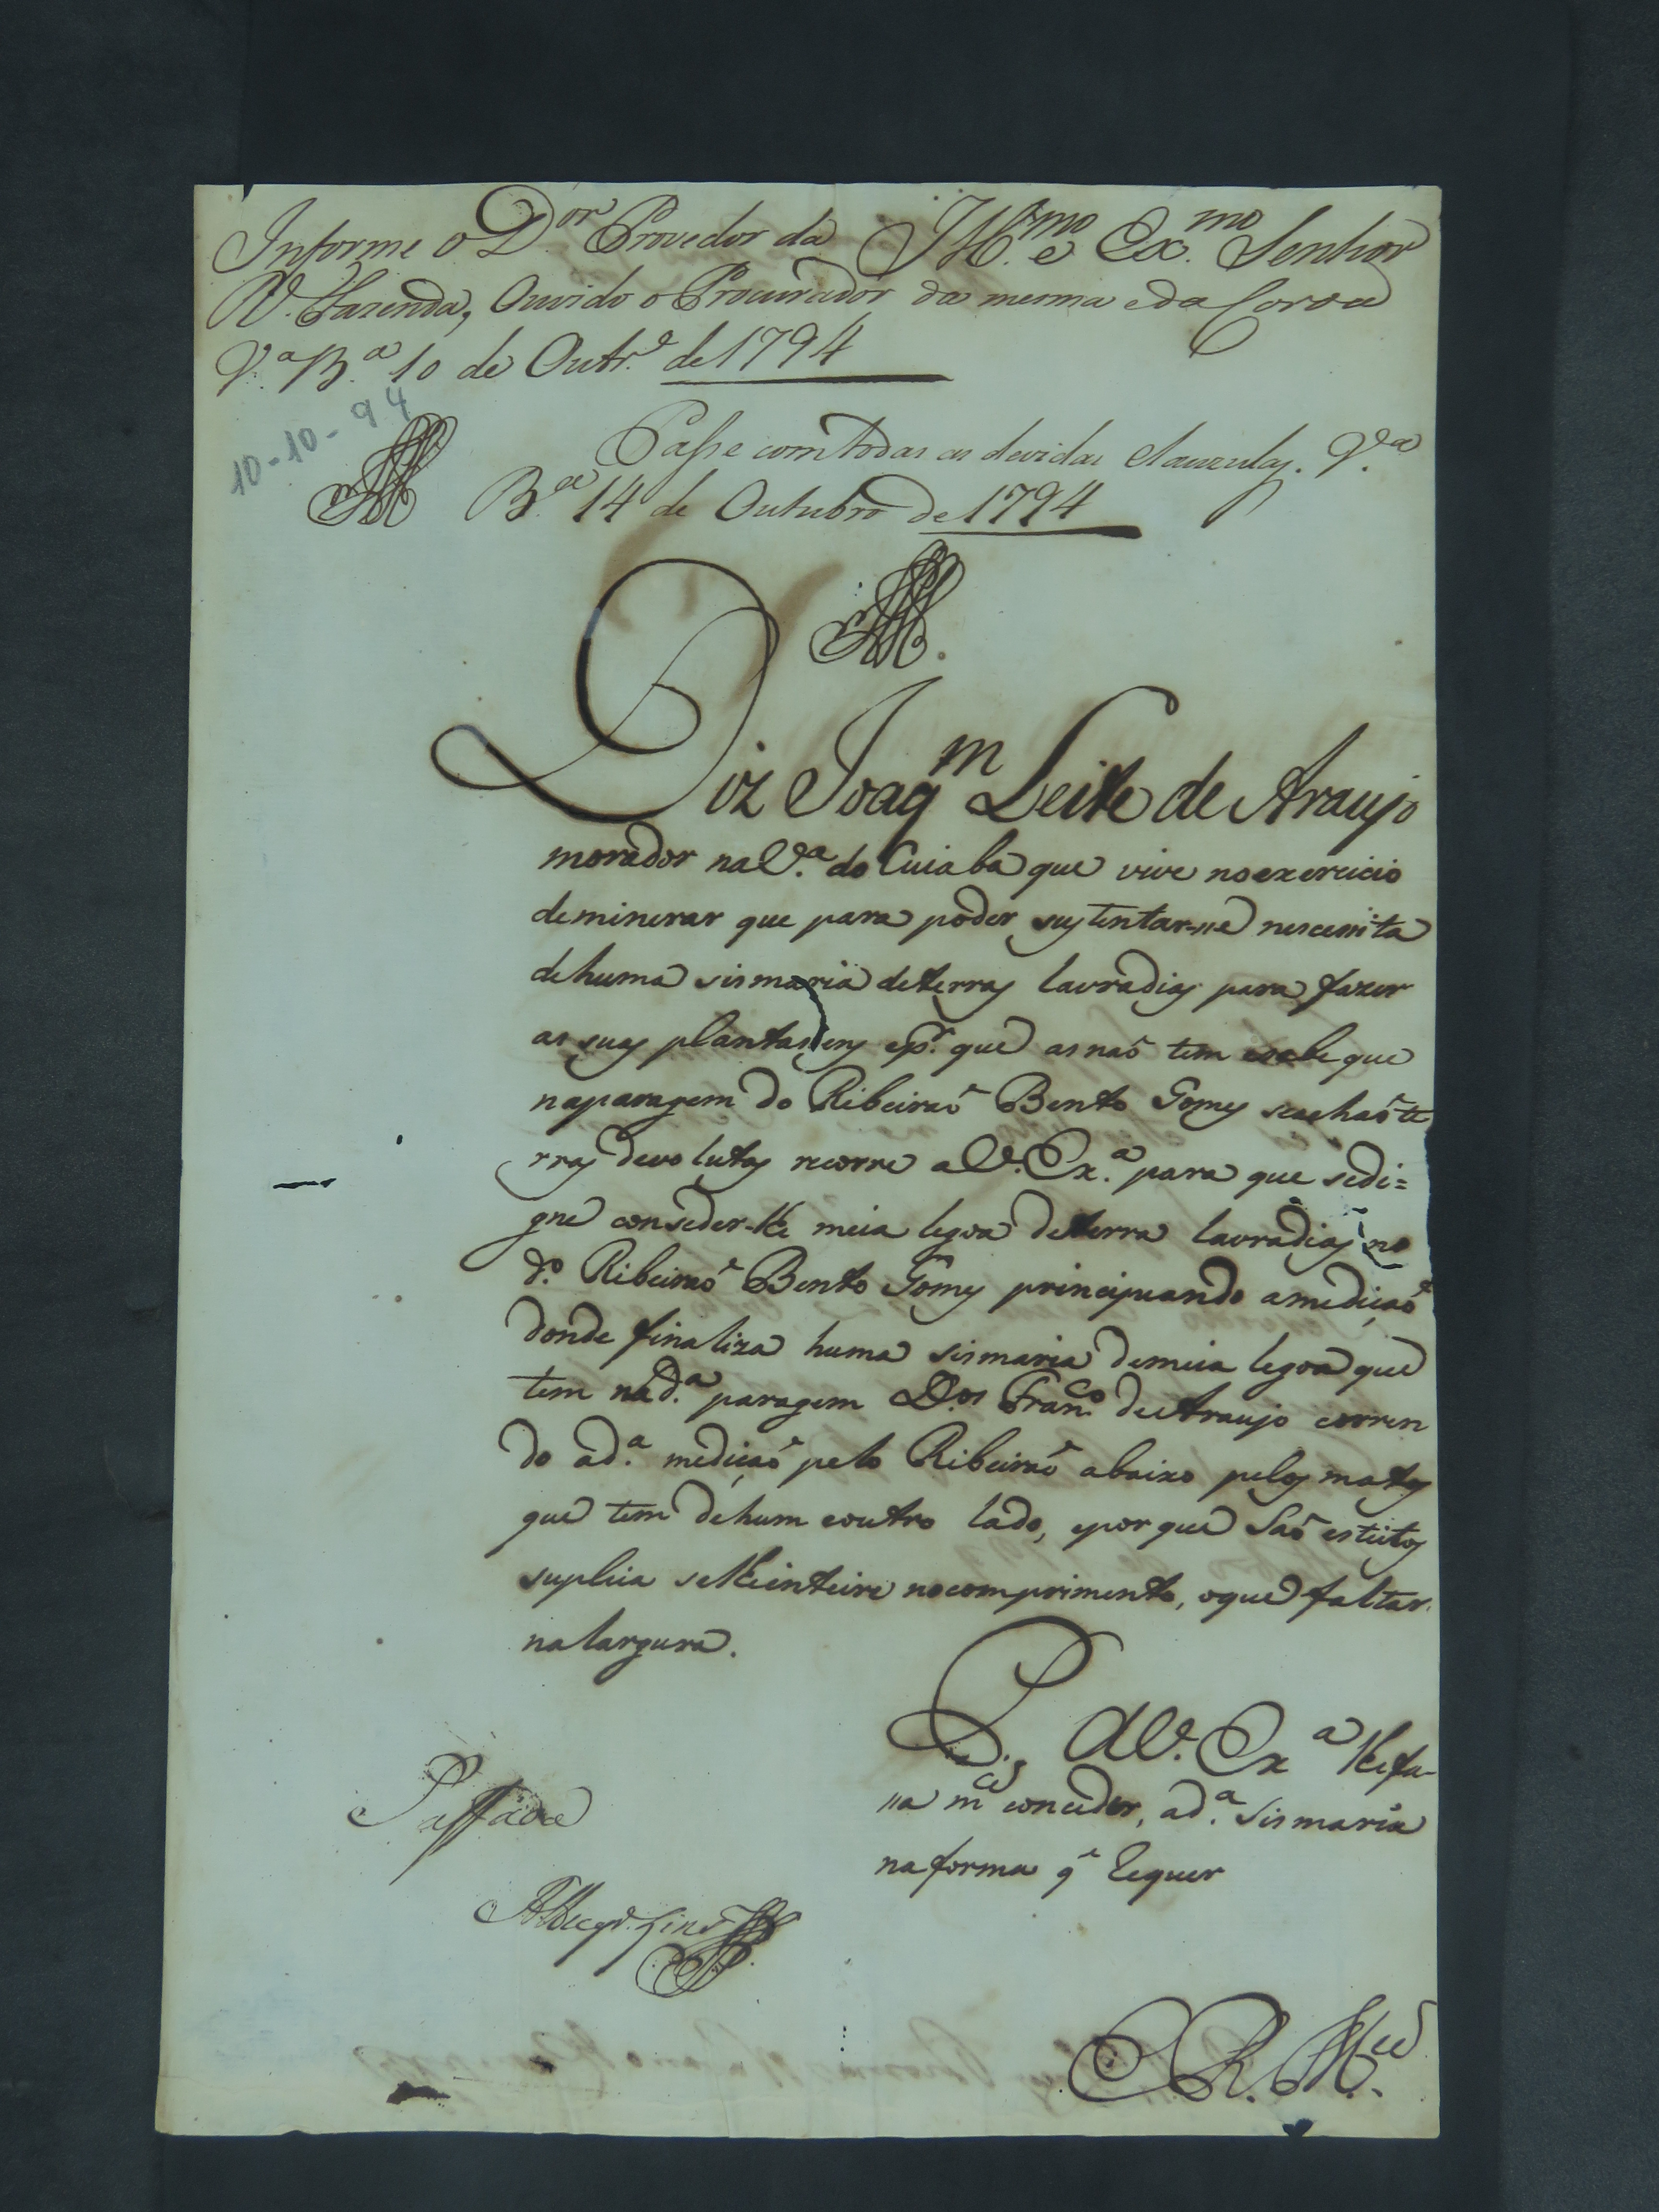 Informe o D.or Provedor da Ill.mo e Ex.mo Senhor
R. Fazenda, Ouvido o Procurador da mesma e da Coroa
V.a B.a 10 de Outr.o de 1794
10-10-94
Passe com todas as devidas clauzulas. V.a
B.a 14 de Outubro de 1794
Diz Joaq.m Leite de Araujo
morador na V.a do Cuiaba que vive no exercicio
de minerar que para poder sustentar-se nescessita
de huma sismaria de terras lavradias para fazer
as suas plantasens e p.r que as naõ tem e sabe que
na paragem do Ribeiraõ Bento Gomes se achaõ te
rras devolutas recorre a V. Ex.a para que se di=
gne conseder-lhe meia legoa de terra lavradias no
d.o Ribeiraõ Bento Gomes principuando a mediçaõ
donde finaliza huma sismaria de meia legoa que
tem na d.a paragem D.os Fran.co de Araujo corren
do a d.a mediçaõ pelo Ribeiraõ abaixo pelos matos
que tem de hum e outro lado, e por que Saõ esteitos
suplica se lhe inteire no comprimento, o que faltar
na largura.
P. a V. Ex.a lhe fa-
sa m.ce conceder, a d.a Sismaria
na forma q.e Requer
Passada
E R. M.ce